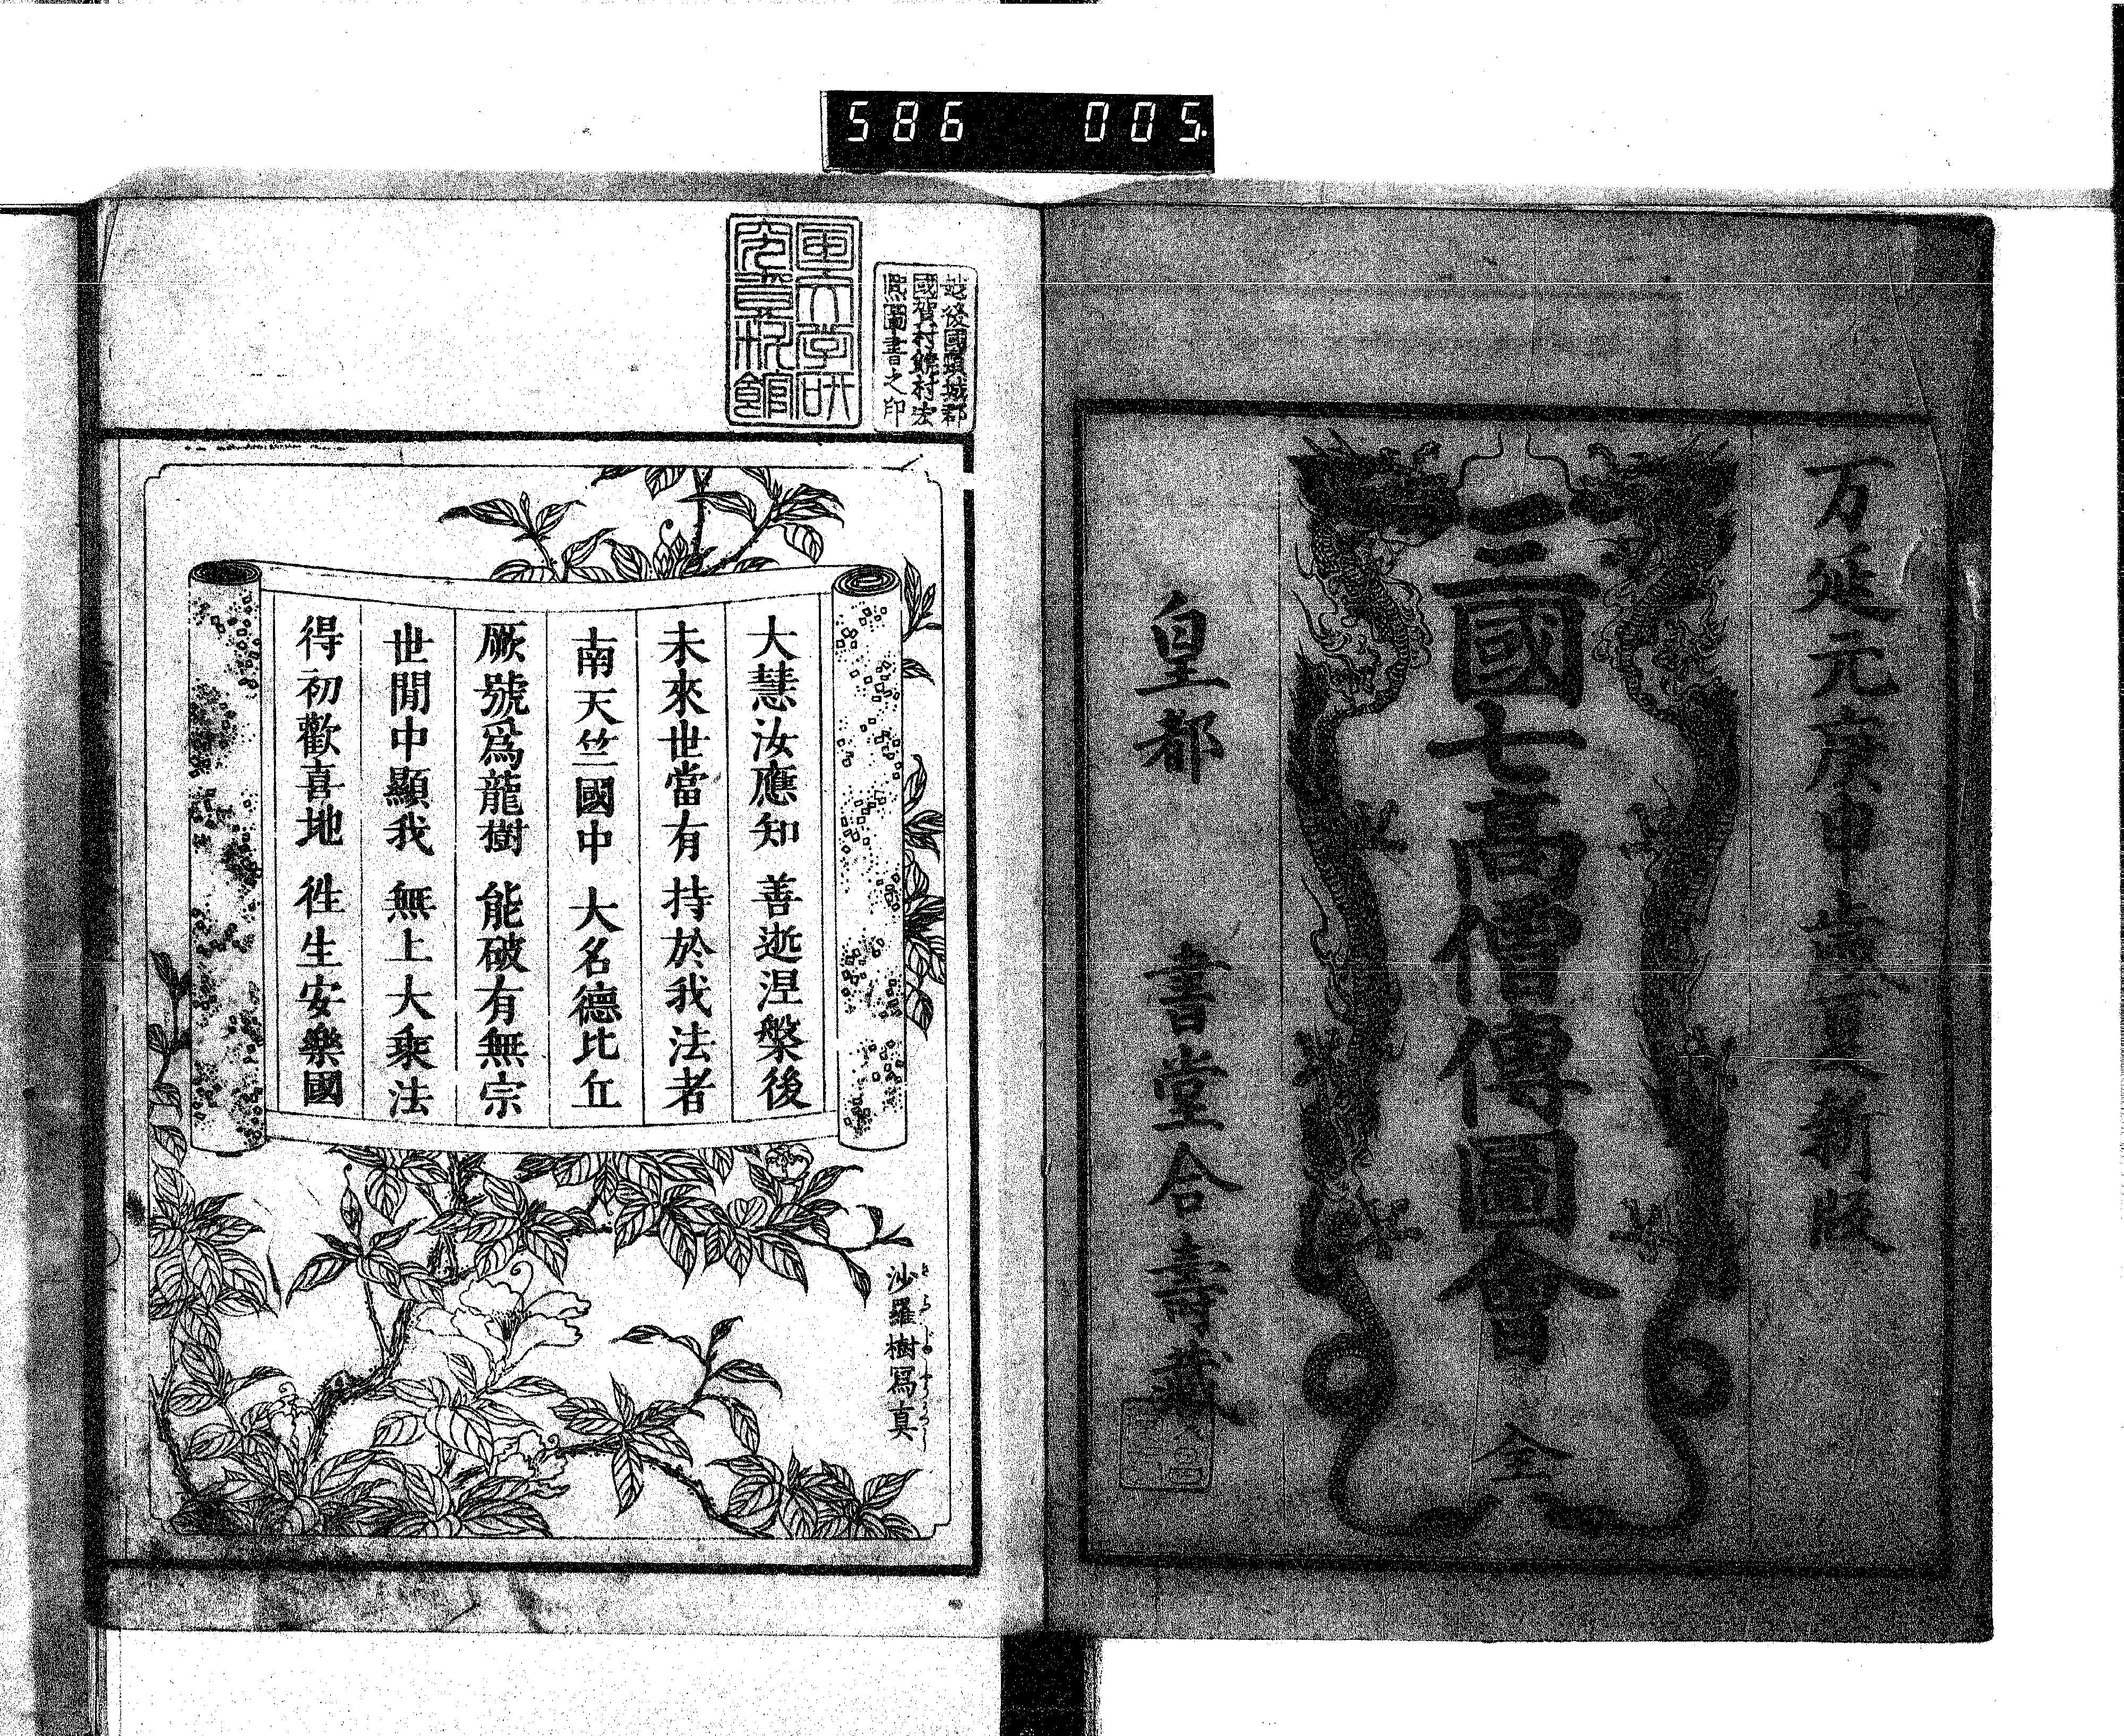 586 005
万延元庚申歳夏新版
三國七高僧傳圖會 全
皇都 書堂合壽藏
越後國頸城郡
國賀村能村法
凞圖書之印
国文学研
究資料館
大慧汝應知 善逝涅槃後
未來世當有 持於我法者
南天竺國中 大名德比丘
厥號爲龍樹 能破有無宗
世間中顯我 無上大乘法
得初歡喜地 徃生安樂國
沙羅樹寫真
さらじゆのしやううつし